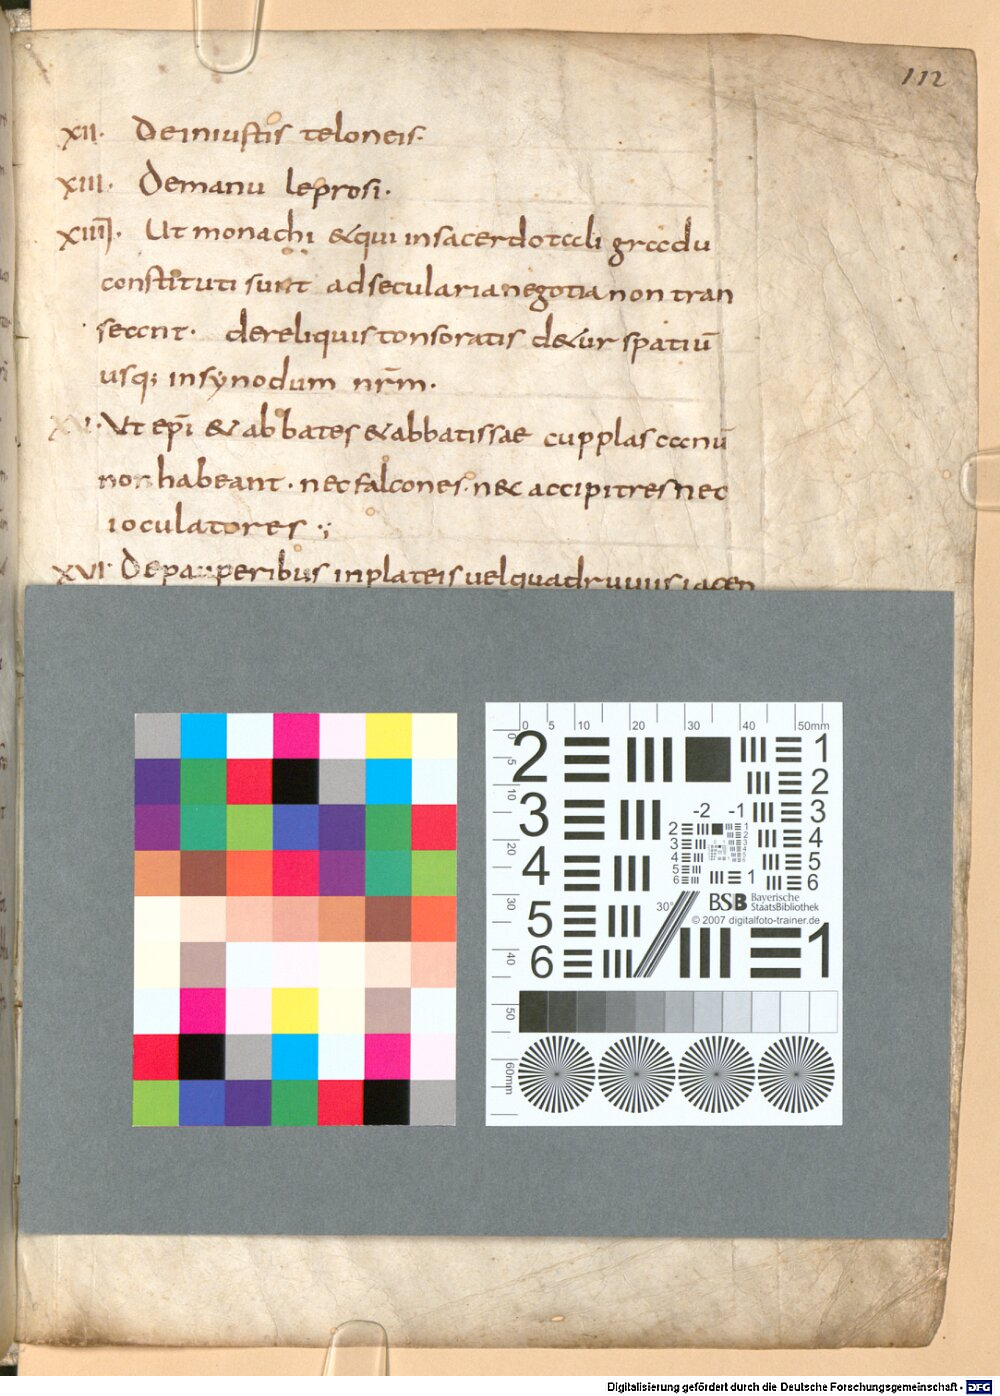 112
XII. De iniustis teloneis.
XIII. De manu leprosi.
XIIII. Ut monachi & qui in sacerdotali gradu
constituti sunt ad secularia negotia non tran
seant. de reliquis tonsoratis det̄ur spatiū
usq; in synodum nr̄m.
XV. Ut ep̄i & abbates & abbatissae cupplas canū
non habeant. nec falcones. nec accipitres nec
ioculatores
XVI. De pauperibus in plateis uel quadruuiis iacen
0 5 10 20 30 40 50mm
0 5 10 20 30 40 50 60mm
2 1
2
3 -2 -1 3
2 1
3 2
4 4 3 4
5 4 5
6 5 6
1 6
30°
BSB Bayerische
StaatsBibliothek
© 2007 digitalfoto-trainer.de
5 1
6
Digitalisierung gefördert durch die Deutsche Forschungsgemeinschaft - DFG